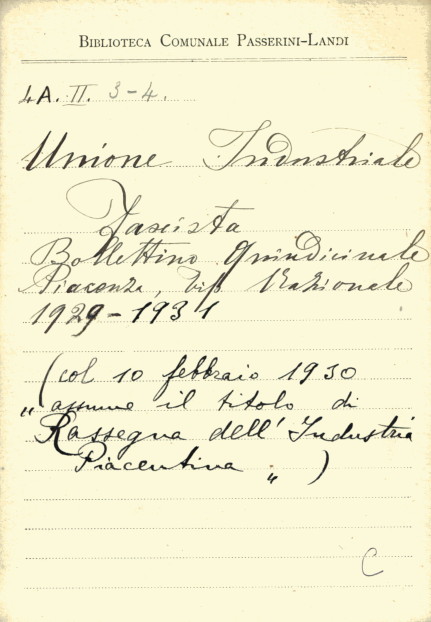 BIBLIOTECA COMUNALE PASSERINI-LANDI
4A. II. 3-4.
Unione Industriale
Fascista
Bollettino Quindicinale
Piacenza, Tip. Nazionale
1929-1931
(col 10 febbraio 1930
„ assume il titolo di
Rassegna dell'Industria
Piacentina „ )
C